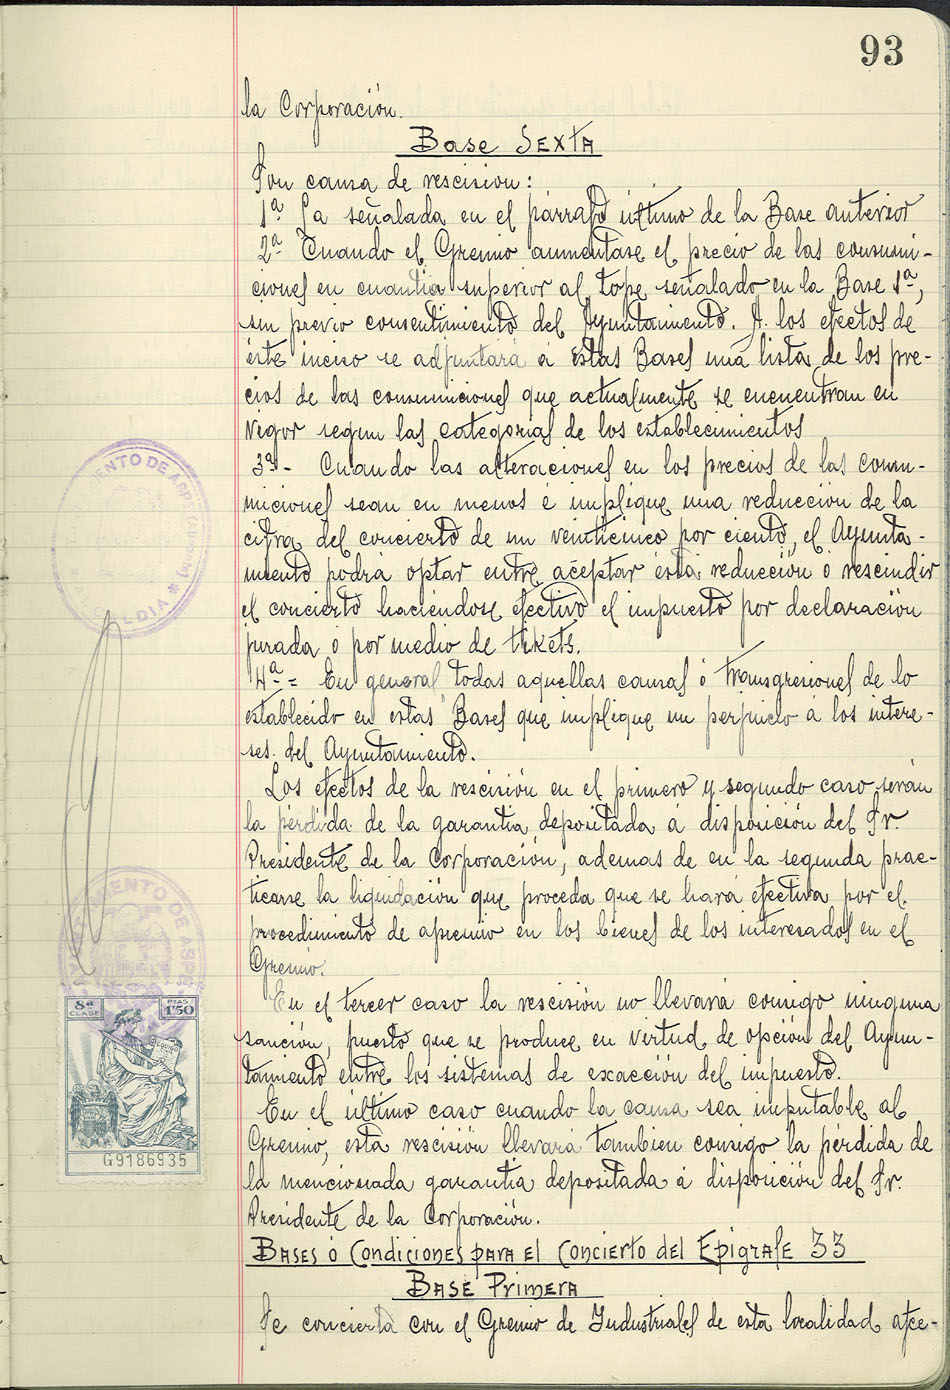 93
la Corporación.
Base Sexta
Son causa de rescision:
1ª La señalada en el párrafo último de la Base anterior
2ª Cuando el Gremio aumentase el precio de las consumi-
ciones en cuantia superior al tope señalado en la Base 1ª,
sin previo consentimiento del Ayuntamiento. A los efectos de
éste inciso se adjuntará á estas Bases una lista de los pre-
cios de las consumiciones que actualmente se encuentran en
vigor segun las categorias de los establecimientos
3ª- Cuando las alteraciones en los precios de las consu-
miciones sean en menos é implique una reducción de la
cifra del concierto de un veinticinco por ciento, el Ayunta-
miento podrá optar entre aceptar ésta reducción ó rescindir
el concierto haciéndose efectivo el impuesto por declaración
jurada ó por medio de tikets.
4ª= En general todas aquellas causas ó transgresiones de lo
establecido en estas Bases que implique un perjuicio á los intere-
ses del Ayuntamiento.
Los efectos de la rescisión en el primero y segundo caso serán
la pérdida de la garantia depositada á disposición del Sr.
Presidente de la Corporación, ademas de en la segunda prac-
ticarse la liquidación que proceda que se hará efectiva por el
procedimiento de apremio en los bienes de los interesados en el
Gremio.
En el tercer caso la rescisión no llevará consigo ninguna
sanción, puesto que se produce en virtud de opción del Ayun-
tamiento entre los sistemas de exacción del impuesto.
En el último caso cuando la causa sea imputable al
Gremio, esta rescisión llevará tambien consigo la pérdida de
la mencionada garantia depositada á disposición del Sr.
Presidente de la Corporación.
Bases ó Condiciones para el Concierto del Epigrafe 33
Base Primera
Se concierta con el Gremio de Industriales de esta localidad afec-
MIENTO DE ASPE (Alicante)
ALCALDIA
MIENTO DE ASPE
8ª CLASE
PTAS. 1'50
G9186935